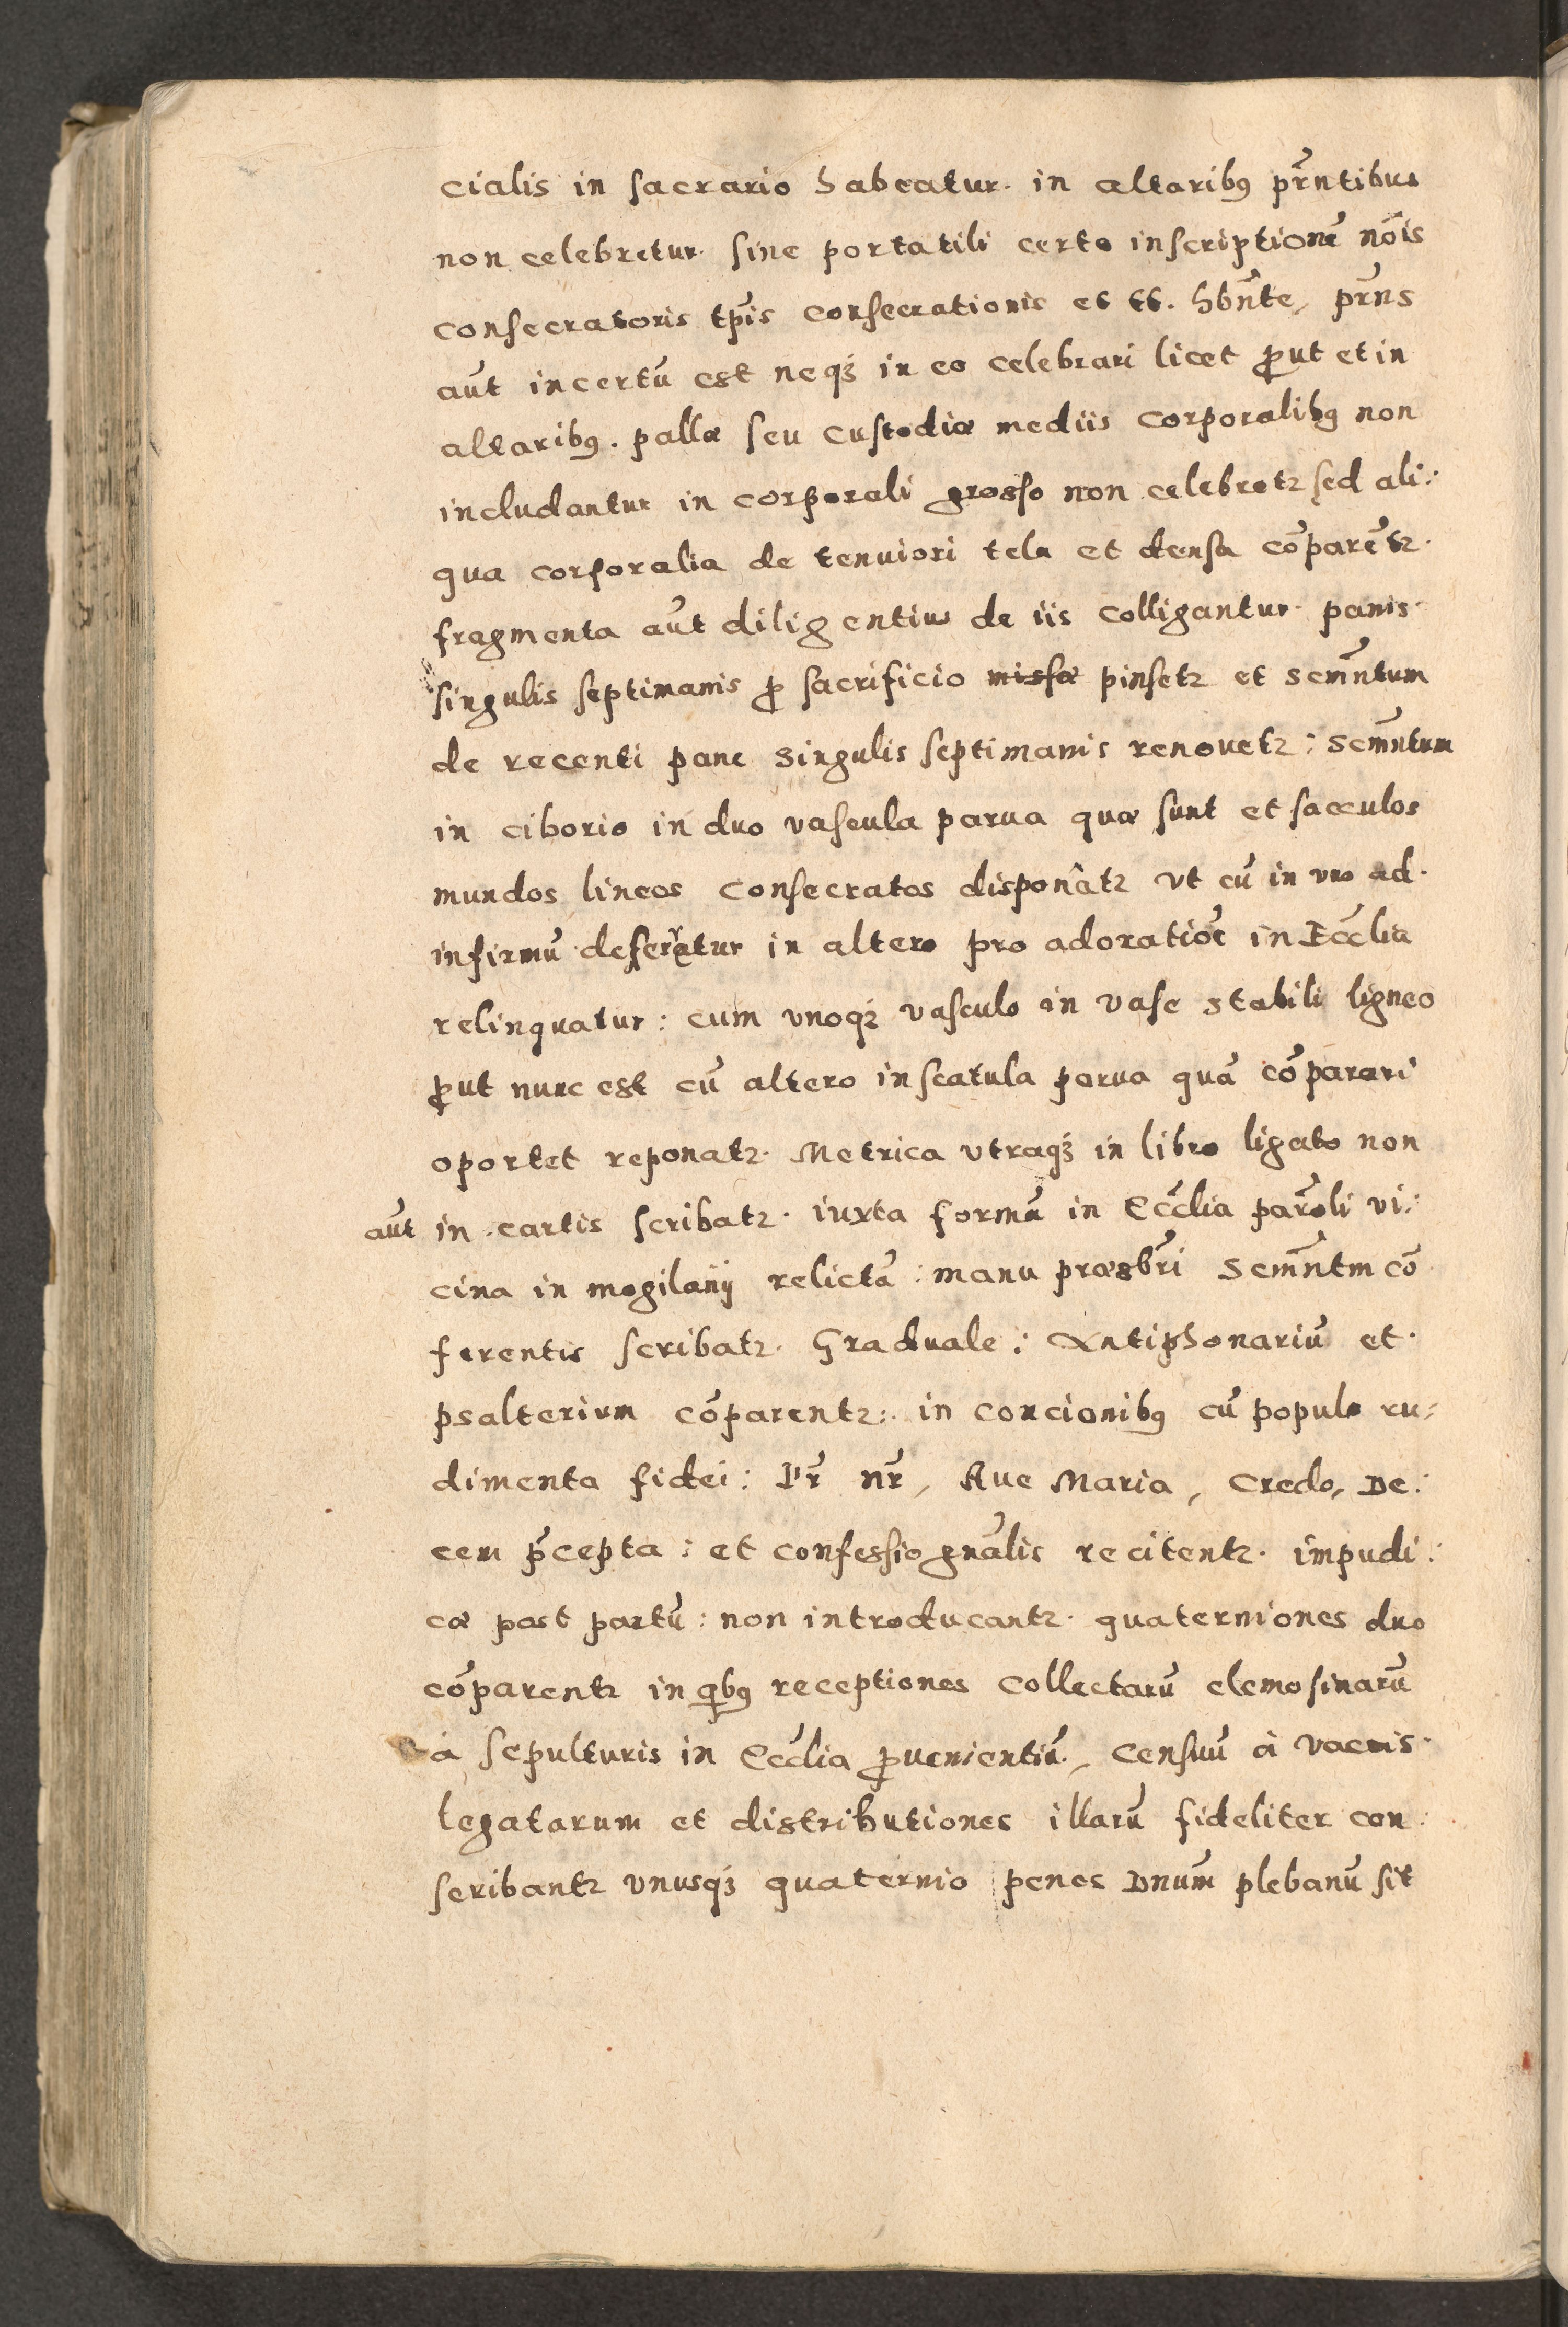 cialis in sacrario habeatur. in altaribꝰ pr̃ntibus
non celebretur sine portatili certo inscriptionẽ nõis
consecratoris tp̃is consecrationis et tt. hbñte, pr̃ns
aũt incertũ est neqꝫ in eo celebrari licet ꝓut et in
altaribꝰ. pallæ seu custodiæ mediis corporalibꝰ non
includantur in corporali grosso non celebretꝛ sed ali:
qua corporalia de tenuiori tela et densa cõparẽtꝛ.
fragmenta aũt diligentius de iis colligantur. panis
singulis septimanis ꝓ sacrificio missæ pinsetꝛ et sacm̃ntum
de recenti pane singulis septimanis renouetꝛ: sacm̃ntum
in ciborio in duo vascula parua quæ sunt et sacculos
mundos lineos consecratos disponatꝛ vt cũ in vno ad
infirmũ defertur in altero pro adoratiõe in Eccl̃ia
relinquatur: cum vnoqꝫ vasculo in vase stabili ligneo
ꝓut nunc est cũ altero in scatula parua quã cõparari
oportet reponatꝛ. Metrica vtraqꝫ in libro ligato non
aũt in cartis scribatꝛ. iuxta formã in Eccl̃ia par̃oli vi:
cina in mogilanij relictã: manu præsbr̃i sacm̃ntm cõ
ferentis scribatꝛ. Graduale: Antiphonariũ et
psalterium cõparentꝛ: in concionibꝰ cũ populo ru:
dimenta fidei: Pr̃ nr̃, Aue Maria, Credo, De:
cem p̃cepta: et confessio gnãlis recitentꝛ. impudi:
cæ post partũ: non introducantꝛ. quaterniones duo
cõparentꝛ in qibꝰ receptiones collectarũ elemosinarũ
à sepulturis in Eccl̃ia ꝓuenientiũ, censuũ à vaccis
legatarum et distributiones illarũ fideliter con:
scribantꝛ vnusqꝫ quaternio penes Dnũm plebanũ sit